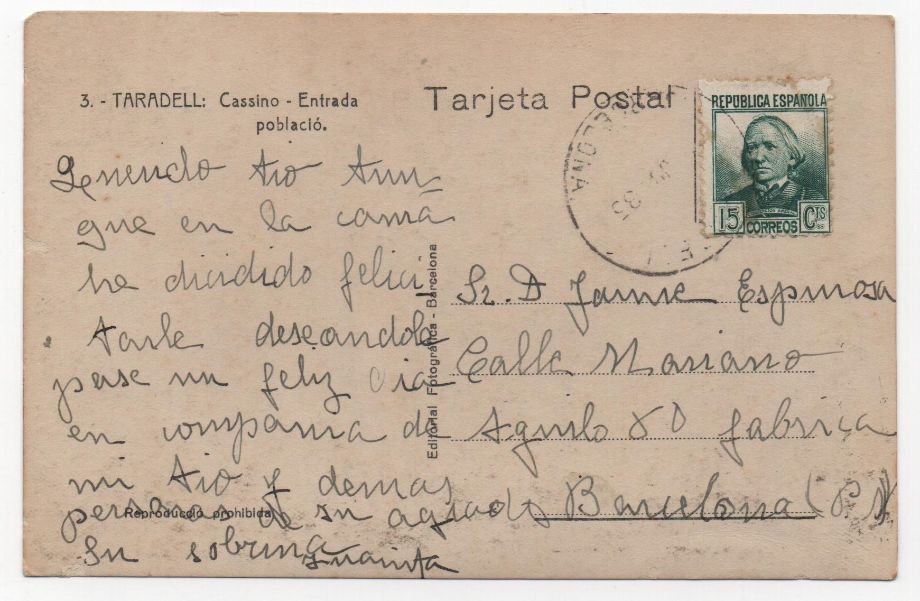 3. - TARADELL: Cassino - Entrada
població.
Tarjeta Postal
REPÚBLICA ESPAÑOLA
15 CTS
CORREOS
BARCELONA
35
Querido tio Aun-
que en la cama
he dicidido felici
tarle deseandole
pase un feliz dia
en compania de
mi tio y demas
personas de su agrado
Su sobrina
Juanita
Reproducció prohibida
Editorial Fotográfica - Barcelona
Sr. D Jaime Espinosa
Calle Mariano
Aguilo 80 fabrica
Barcelona (P N)